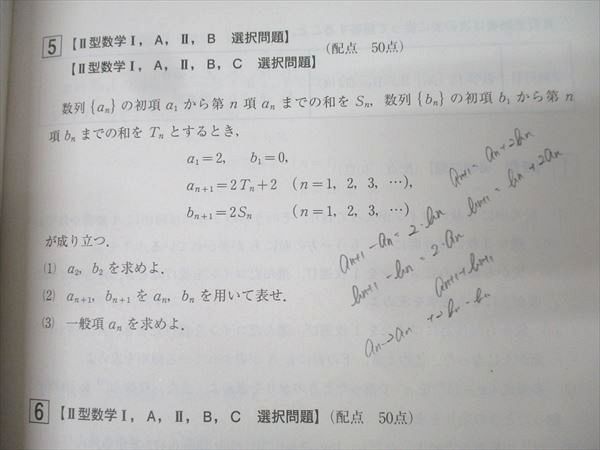 5 【Ⅱ型数学Ⅰ, A, Ⅱ, B 選択問題】 (配点 50点)
【Ⅱ型数学Ⅰ, A, Ⅱ, B, C 選択問題】
数列 {aₙ} の初項 a₁ から第 n 項 aₙ までの和を Sₙ, 数列 {bₙ} の初項 b₁ から第 n
項 bₙ までの和を Tₙ とするとき,
a₁=2, b₁=0,
aₙ₊₁=2Tₙ+2 (n=1, 2, 3, …),
bₙ₊₁=2Sₙ (n=1, 2, 3, …)
が成り立つ.
(1) a₂, b₂ を求めよ.
(2) aₙ₊₁, bₙ₊₁ を aₙ, bₙ を用いて表せ.
(3) 一般項 aₙ を求めよ.
aₙ₊₁ = aₙ+2bₙ
bₙ₊₁ = bₙ+2aₙ
aₙ₊₁-aₙ=2・bₙ
bₙ₊₁-bₙ=2・aₙ
aₙ₊₁+bₙ₊₁
aₙ-2aₙ+2bₙ-bₙ
6 【Ⅱ型数学Ⅰ, A, Ⅱ, B, C 選択問題】 (配点 50点)